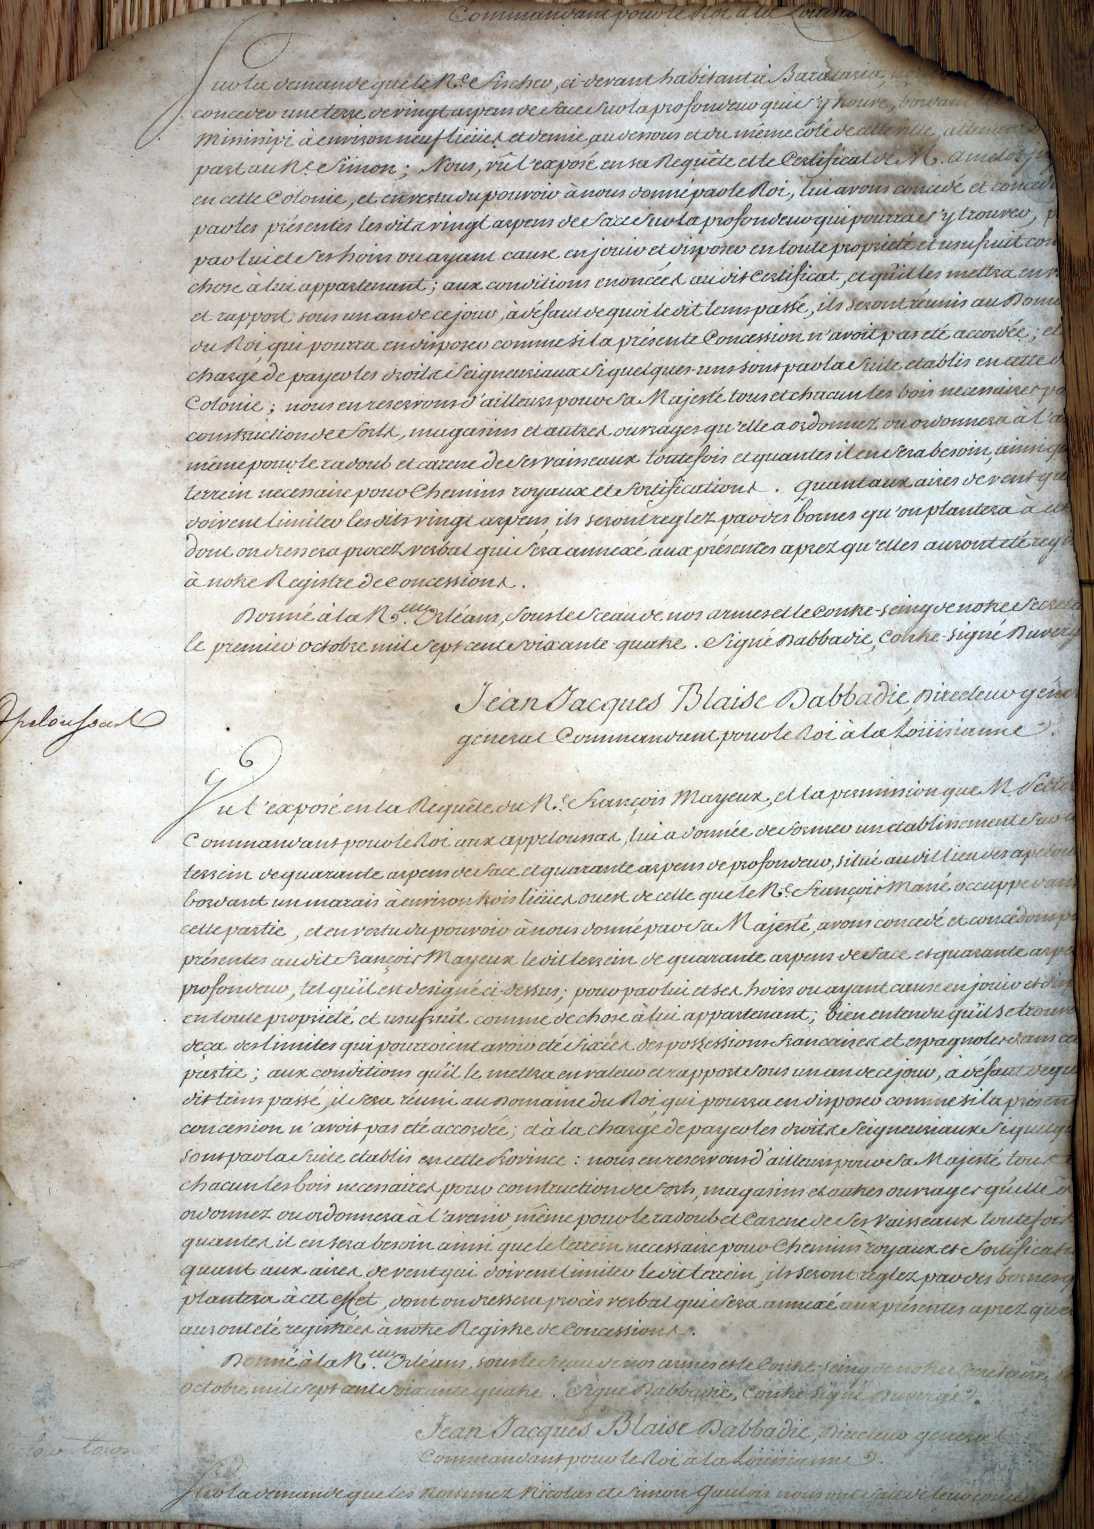 Commandant pour le Roi à la Louisia
Sur la demande que le Né. Fischer, ci-devant habitant à Barataria,
conceder une terre de vingt arpens de face sur la profondeur qui s'y trouve, bordant
Missisipi à environ neuf lieües et demie, au dessous et du même côté de cette ville, attenant
part au Nr. Simon; Nous, vû l'exposé en sa Requête et le Certificat de M. Amelot,
en cette Colonie, et en vertu du pouvoir à nous donné par le Roi, lui avons concedé et conced
par les présentes les dits vingt arpens de face sur la profondeur qui pourra s'y trouver, p
par lui et ses hoirs ou ayant cause en jouir et disposer en toute proprieté et usufruit com
chose à lui appartenant; aux conditions enoncées au dit Certificat, et qu'il les mettra en v
et rapport sous un an de ce jour, à défaut de quoi le dit tems passé, ils seront réunis au Doma
du Roi qui pourra en disposer comme si la présente Concession n'avoit pas eté accordée; et
chargé de payer les droits Seigneuriaux si quelques-uns sont par la suite etablis en cette d
Colonie; nous en reservons d'ailleurs pour sa Majesté tous et chacun les bois necessaires po
construction de forts, magasins et autres ouvrages qu'elle a ordonnez ou ordonnera à l'a
même pour le radoub et carene de ses vaisseaux toutefois et quantes il en sera besoin, ainsi q
terrein necessaire pour Chemins royaux et fortifications. Quant aux aires de vent qu
doivent limiter les dits vingt arpens ils seront reglez par des bornes qu'on plantera à cet
dont on dressera procez verbal qui sera annexé aux présentes aprez qu'elles auront eté regis
à notre Registre de Concessions.
Donné à la Nlle. Orléans, sous le Sceau de nos armes et le contre-seing de notre Secreta
le premier octobre mil sept cent soixante-quatre. Signé Dabbadie, Contre-signé Duvergé
Jean Jacques Blaise Dabbadie, Directeur géné
general Commandant pour le Roi à la Loüisianne.
Vu l'exposé en la Requête du Nr. François Mayeux, et la permission que M.
Commandant pour le Roi aux appeloussas, lui a donnée de former un etablissement sur
terrein de quarante arpens de face et quarante arpens de profondeur, situé au dit lieu des apelou
bordant un marais à environ trois lieües ouest de celle que le Nr. François Marié occuppe dans
cette partie, et en vertu du pouvoir à nous donné par sa Majesté, avons concedé et concedons p
présentes au dit François Mayeux le dit terrein de quarante arpens de face et quarante arpe
profondeur, tel qu'il est designé ci-dessus; pour par lui et ses hoirs ou ayant cause en jouir et disp
en toute proprieté et usufruit comme de chose à lui appartenant; bien entendu qu'il se trouve
deça des limites qui pourroient avoir eté fixées des possessions francaises et espagnoles dans ce
partie; aux conditions qu'il le mettra en valeur et rapport sous un an de ce jour, à défaut de qu
dit tems passé, il sera réuni au Domaine du Roi qui pourra en disposer comme si la présen
concession n'avoit pas eté accordée; et à la charge de payer les droits Seigneuriaux si quelq
sont par la suite etablis en cette Province: nous en reservons d'ailleurs pour sa Majesté tous
chacun les bois necessaires pour construction de forts, magasins et autres ouvrages qu'elle a
ordonnez ou ordonnera à l'avenir, même pour le radoub et Carene de ses Vaisseaux toutefois
quantes il en sera besoin ainsi que le terrein necessaire pour Chemins royaux et fortificati
quant aux aires de vent qui doivent limiter le dit terrein, ils seront reglez par des bornes q
plantera à cet effet, dont on dressera procès verbal qui sera annexé aux présentes aprez qu'e
auront eté registrées à notre Registre de Concessions.
Donné à la Nlle. Orléans, sous le Sceau de nos armes et le contre-seing de notre Secretaire,
octobre mil sept cent soixante quatre. Signé Dabbadie, Contre-signé Duvergé.
Jean Jacques Blaise Dabbadie, Directeur general
Commandant pour le Roi à la Loüisianne.
Sur la demande que les nommez Nicolas et Simon Gaulois nous ont fait de leur conce